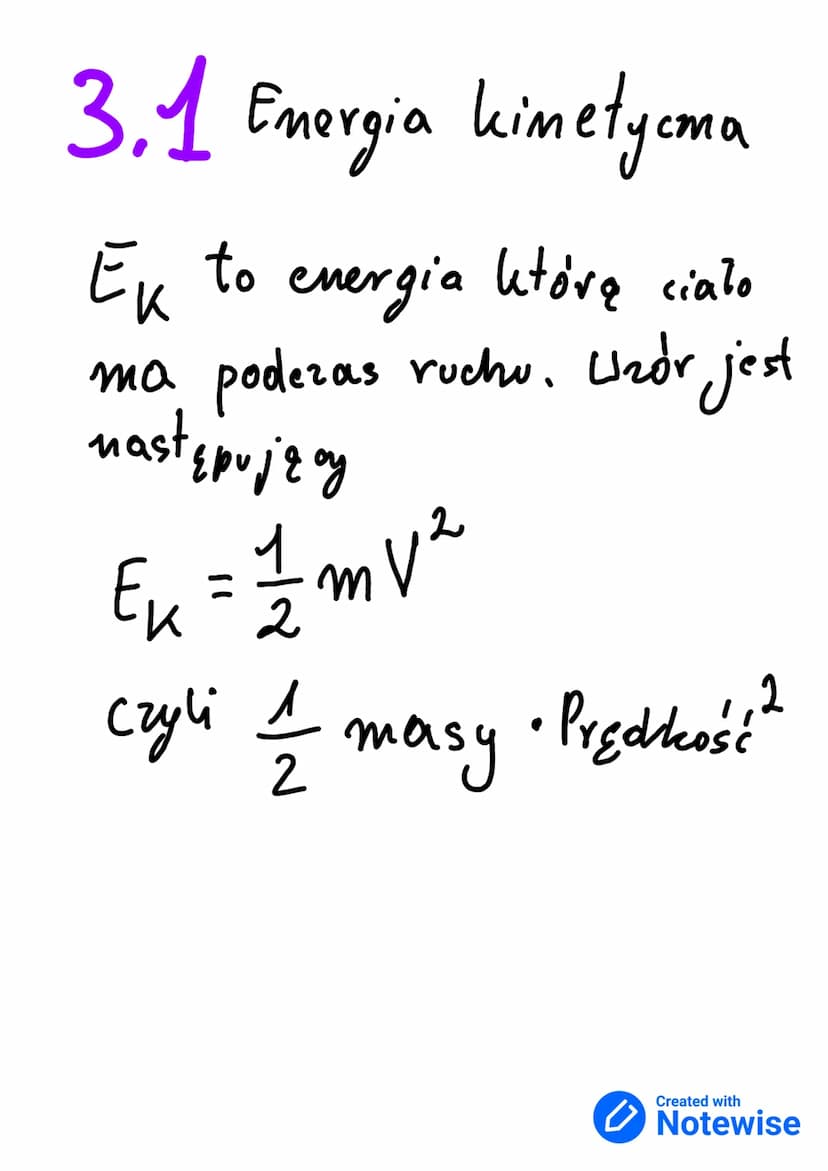 3.1 Energia kinetyczna
EK to energia którą ciało
ma podczas ruchu. Wzór jest
następujący
EK = 1/2 mV²
czyli 1/2 masy · Prędkość²
Created with
Notewise